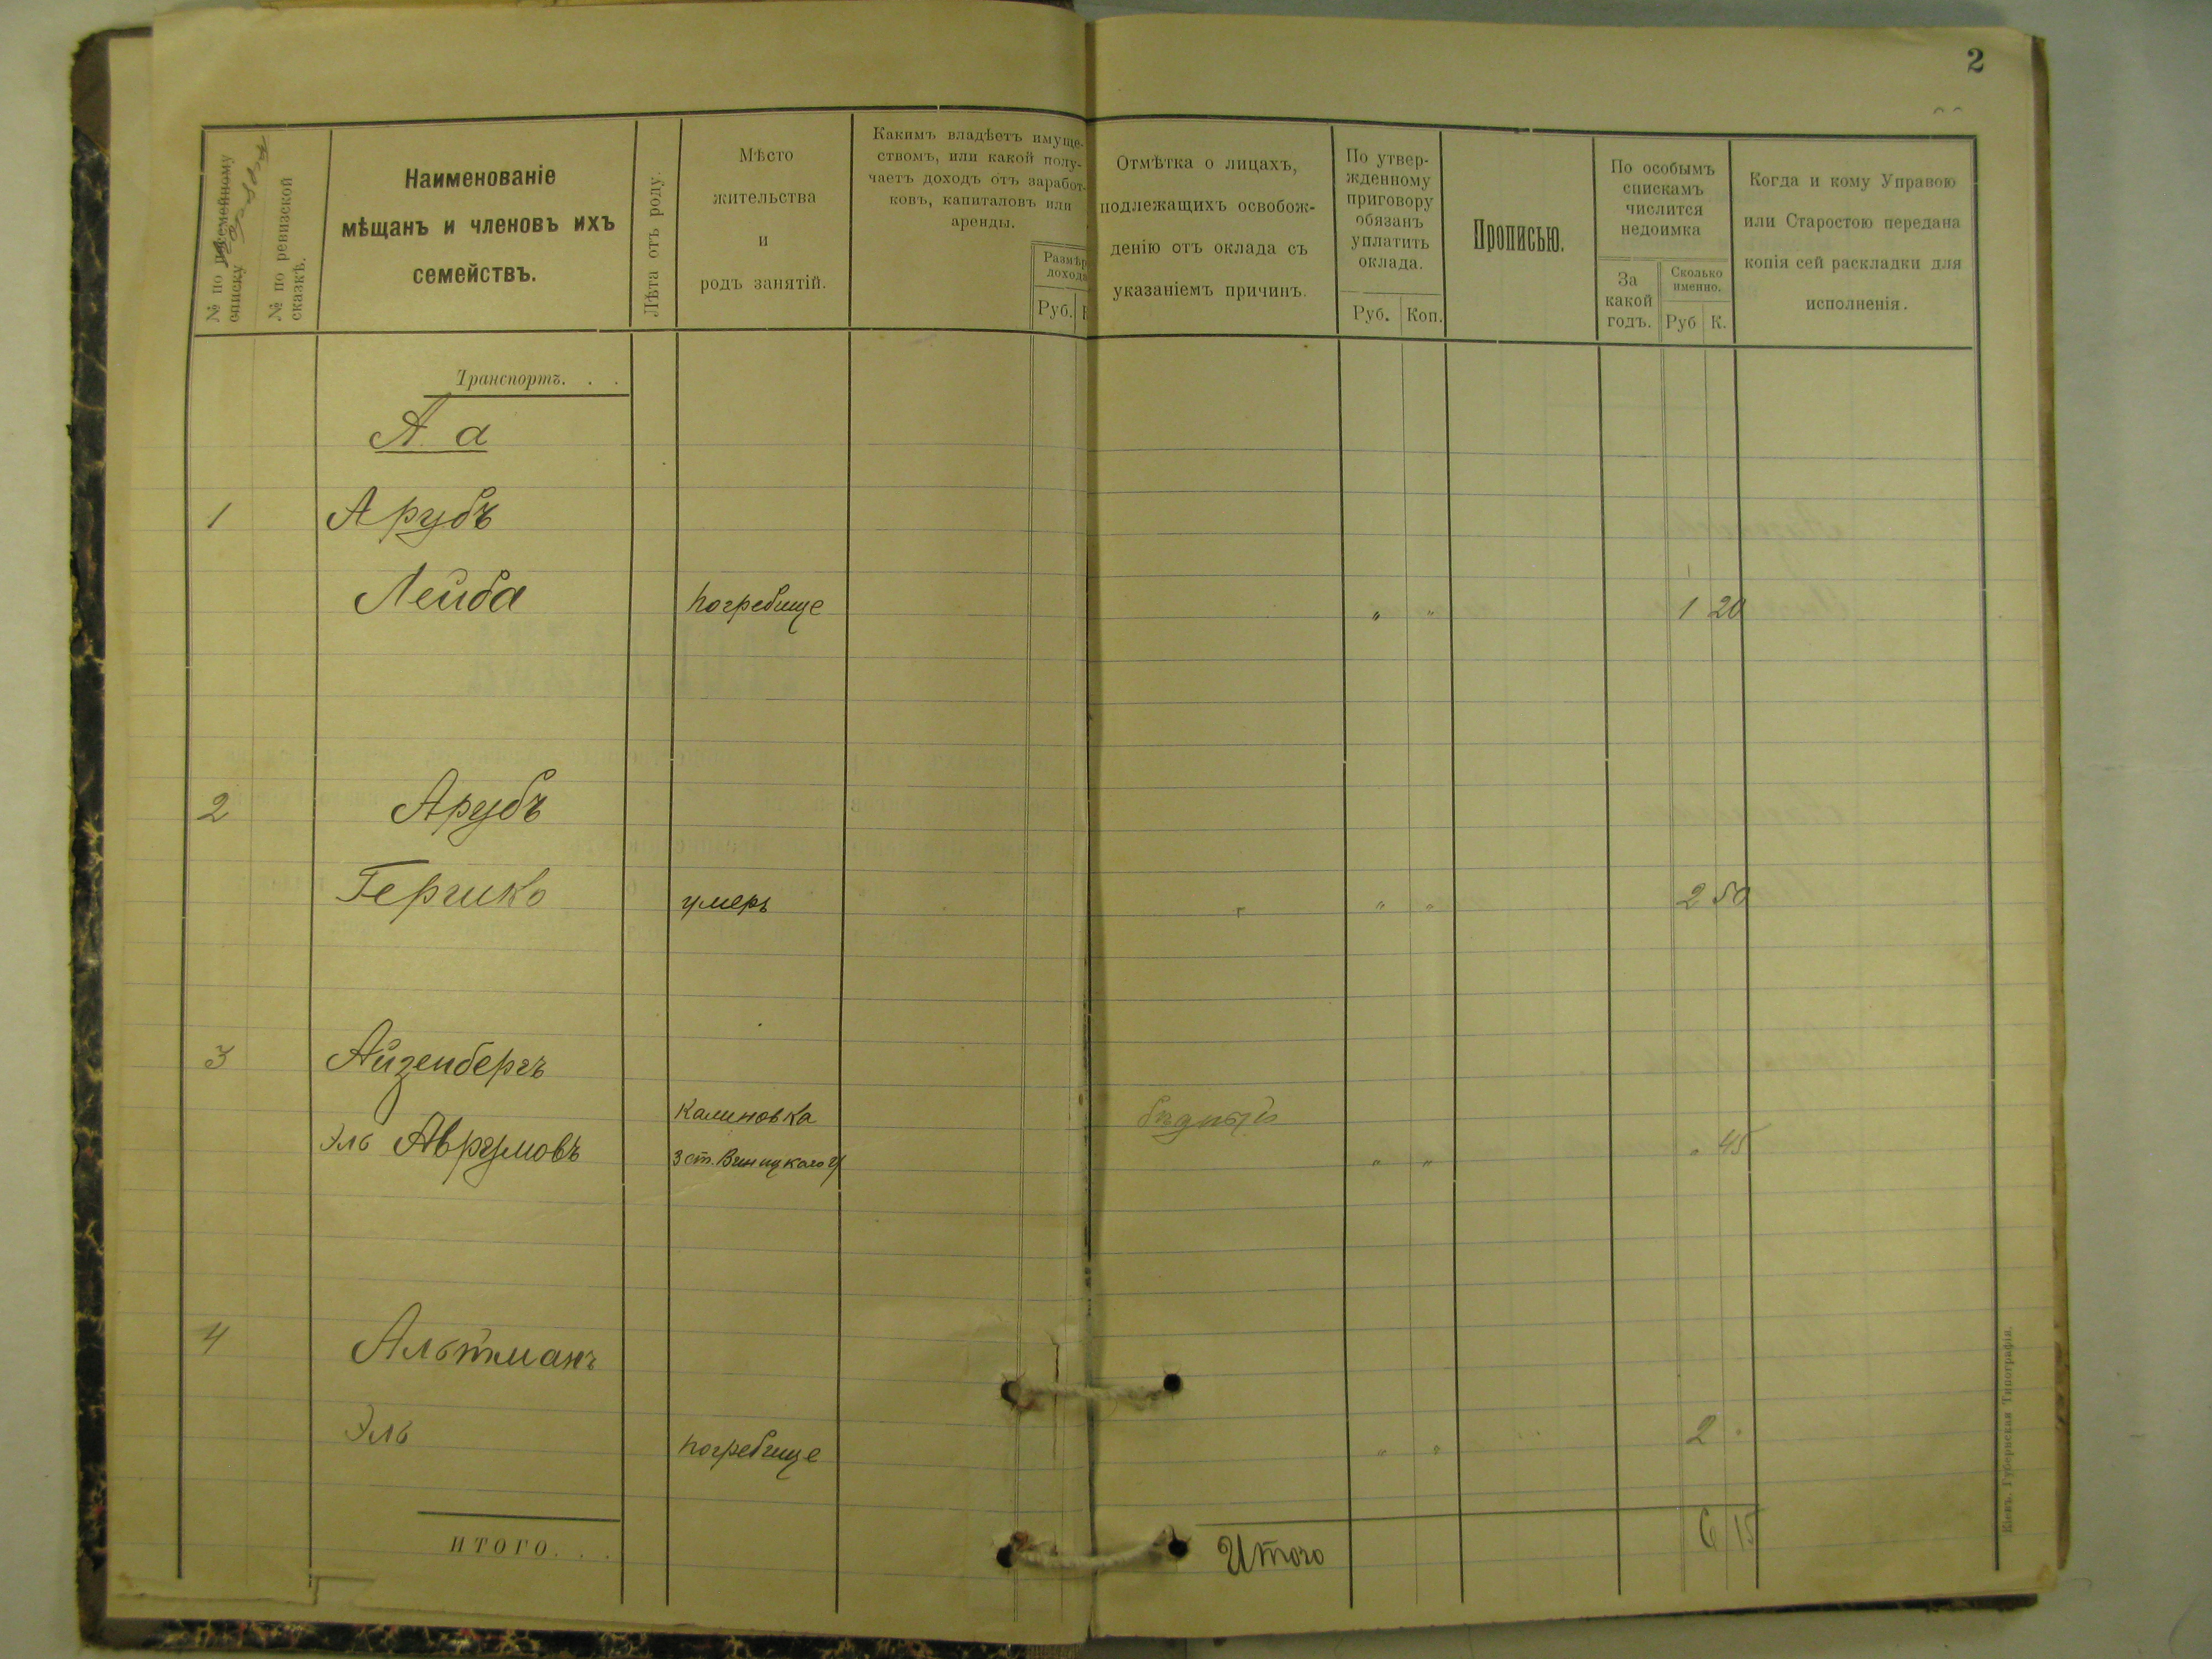 2
№ по посемейному списку
№ по ревизской сказкѣ.
Наименованіе
мѣщанъ и членовъ ихъ
семействъ.
Лѣта отъ роду.
Мѣсто
жительства
и
родъ занятій.
Какимъ владѣетъ имуще-
ствомъ, или какой полу-
чаетъ доходъ отъ заработ-
ковъ, капиталовъ или
аренды.
Размѣр
дохода
Руб.
Отмѣтка о лицахъ,
подлежащихъ освобож-
денію отъ оклада съ
указаніемъ причинъ.
По утвер-
жденному
приговору
обязанъ
уплатить
оклада.
Руб. Коп.
Прописью.
По особымъ
спискамъ
числится
недоимка
За
какой
годъ.
Сколько
именно.
Руб К.
Когда и кому Управою
или Старостою передана
копія сей раскладки для
исполненія.
Транспортъ. . .
А а
1 Арубъ
Лейба погребище " " 1 20
2 Арубъ
Гершко умеръ " " 2 50
3 Айзенбергъ
Калиновка бѣдный
Эль Аврумовъ 3 ст. Виницкого у " " " 45
4 Альтманъ
Эль погребище " " 2 "
ИТОГО. . .
Итого 6 15
Кіевъ. Губернская Типографія.